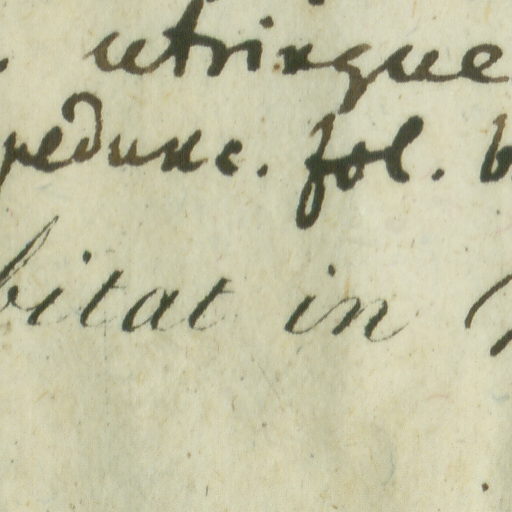 utrinque
pedunc. fol.
bitat in